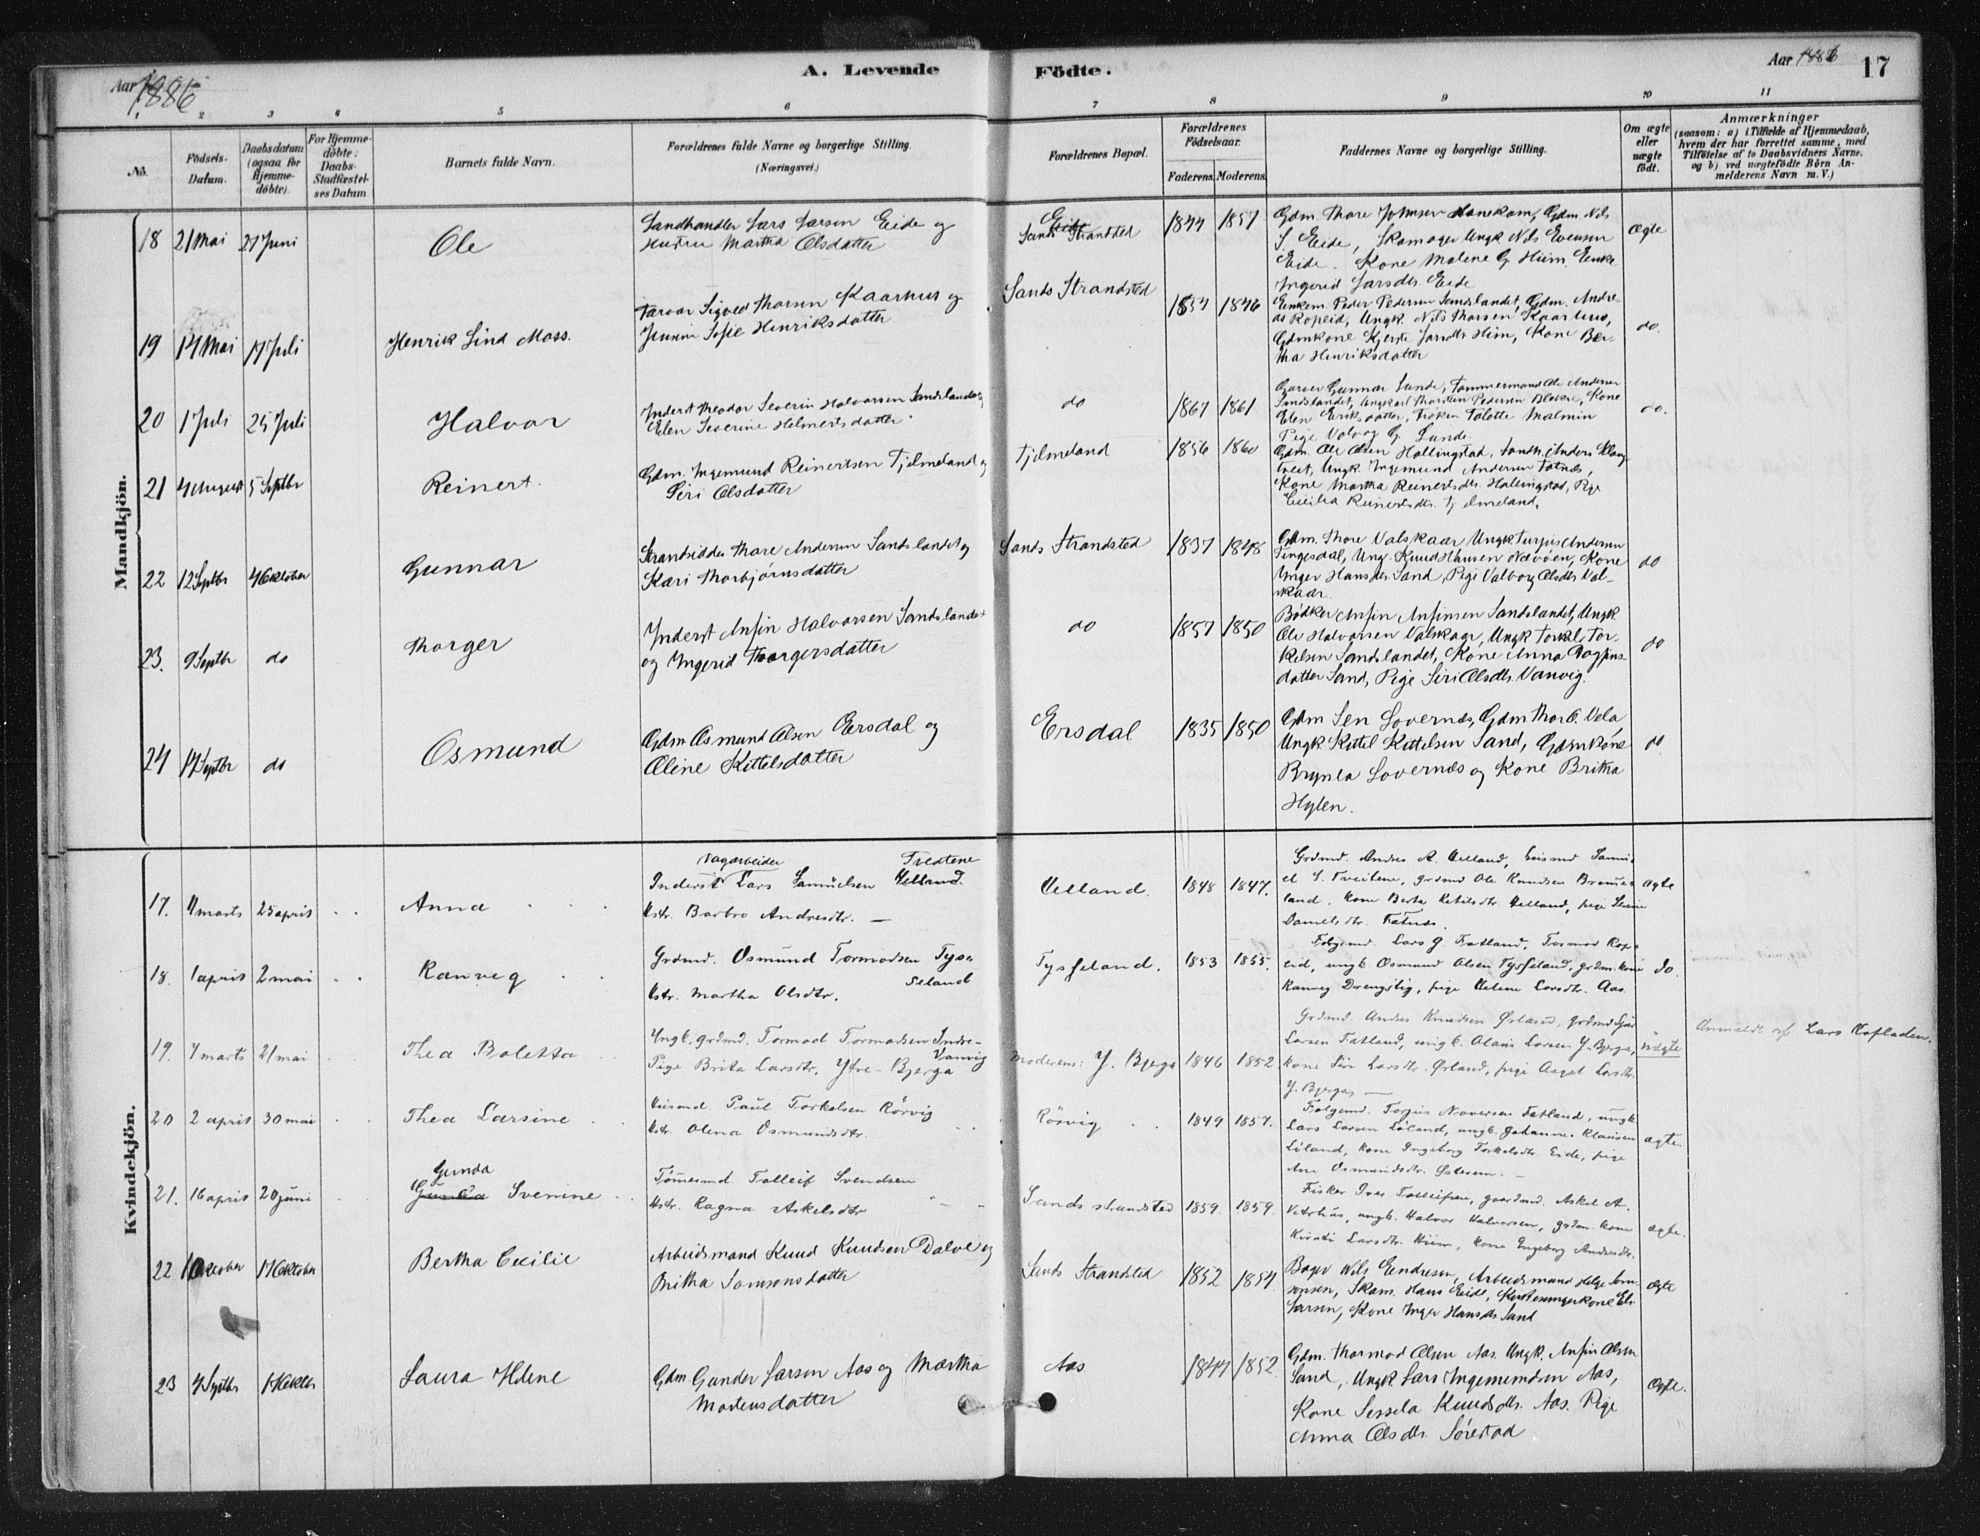 Aar 1886
A. Levende Födte.
Aar 1886 17
1 2 3 4 5 6 7 8 9 10 11
No.
Födsels-Datum.
Daabsdatum (ogsaa för Hjemme-döbte).
For Hjemme-döbte: Daabs-Stadfæstel-ses Datum
Barnets fulde Navn.
Forældrenes fulde Navne og borgerlige Stilling. (Næringsvei.)
Forældrenes Bopæl.
Forældrenes Födselsaar.
Faderens. Moderens.
Faddernes Navne og borgerlige Stilling.
Om ægte eller uægte födt.
Anmærkninger
(saasom: a) i Tilfælde af Hjemmedaab,
hvem der har forrettet samme, med
Tilföielse af to Daabsvidners Navne.
og b) ved uægtefödte Börn An-
melderens Navn m. V.)
Mandkjön.
18 21 Mai 27 Juni Ole
Landhandler Lars Larsen Eide og
Hustru Martha Olsdatter
Sands Strandsted 1844 1857
Gdm. Thore Johnsen Hanekam, Gdm Nils
S. Eide, Skomager Ungk. Nils Evensen
Eide. Kone Malene G. Hiim. Enke
Ingerid Larsdtr Eide
Ægte
19 14 Mai 11 Juli Henrik Lind Moss.
Farver Sigved Thorsen Kaarhus og
Jensine Sofie Henriksdatter
Sands Strandsted 1854 1846
Enkem. Peder Pedersen Sandslandet, Gdm. Andre-
as Ropeid, Ungk. Nils Thorsen Kaarhus,
Gdmkone Kjersti Larsdtr Hiim, Kone Ber-
tha Henriksdatter
do.
20 1 Juli 25 Juli Halvor
Inderst Theodor Severin Halvorsen Sandslandet og
Elen Severine Helmertsdatter
do 1867 1861
Garver Gunnar Sande, Tømmermand Ole Andersen
Sandslandet, Ungkarl Thorsten Pedersen, Kone
Elen Eriksdatter, Frøken Tolette Malmin
Pige Valborg G. Sande
do.
21 4 August 5 Septbr Reinert.
Gdm. Ingemund Reinertsen Tjelmeland og
Siri Olsdatter
Tjelmeland 1856 1860
Gdm. Ole Olsen Hallingstad, Landh. Anders Klung-
tveit, Ungk. Ingemund Andersen Fatnes,
Kone Martha Reinertsdtr. Hallingstad, Pige
Cecilia Reinertsdtr. Tjelmeland.
22 12 Septbr 4 Oktober Gunnar
Strandsidder Thore Andersen Sandslandet og
Kari Thorbjørnsdatter
Sands Strandsted 1837 1848
Gdm. Thore Valskaar Ungk Torjus Andersen
Tengesdal, Ung. Knud Hansen Nævøen, Kone
Inger Hansdtr Sand, Pige Valborg Olsdtr Val-
skaar.
do
23. 9 Septbr do Thorger
Inderst Anfin Halvorsen Sandslandet
og Ingerid Thorgersdatter
do 1857 1850
Bødker Anfin Anfinsen Sandslandet, Ungk
Ole Halvorsen Valskaar, Ungk Torkel Tor-
kelsen Sandslandet, Kone Anna Dagfins-
datter Sand, Pige Siri Olsdtr. Vanvig.
do
24 14 Septbr do Osmund
Gdm Osmund Olsen Ersdal og
Oline Kittelsdatter
Ersdal 1835 1850
Gdm Sen Lovernæs, Gdm Thor O. Vela
Ungk Kittel Kittelsen Sand, Gdmkone
Brynla Lovernæs og Kone Britha
Hylen.
do
Kvindekjön.
17. 4 marts 25 april Anna
Vagarbeider Tvedtene
Inderst Lars Samuelsen Helland.
Hstr. Barbro Andresdtr. —
Helland. 1848 1847.
Grdmd. Andres A. Helland, Husmd Samu-
el S. Tveitene, grdmd Ole Knudsen Bramte-
land, kone Berta Ketilsdtr. Helland, pige Serine
Danielsdtr. Fatnes.
ægte
18. 1 april 2 mai Ranveg
Grdmd. Osmund Tormodsen Tys-
seland
Hstr. Martha Olsdtr.
Tysseland. 1853 1855.
Folgemd. Lars G Fatland, Tormod Rop-
eid, ungk. Osmund Olsen Tysseland, grdm. kone
Ranveg Drengstig, pige Helene Larsdtr. Aas.
do.
19. 4 marts 21 mai Thea Boletta
Ungk. grdmd. Tormod Tormodsen Indre-
Vanvig
Pige Brita Larsdtr. Ytre-Bjerga
Moderens: Y. Bjerga 1846 1852
Grdmd. Andres Knudsen Ørland, grdmd
Larsen Fatland, ungk. Olaus Larsen Y. Bjerga,
kone Siri Larsdtr. Ørland, pige Aagot Larsdtr.
Y. Bjerga, —
uægte
Anmeldt af Lars Hafladen.
20 2 april 30 mai Thea Larsine
Husmd. Paul Torkelsen Rørvig
Hstr. Olena Osmundsdtr.
Rørvig 1849 1857.
Folgemd. Torjus Iversen Fatland, ungk
Lars Larsen Løland, ungk. Johannes Klausen
Løland, kone Ingeborg Torkelsdtr. Eide, pige
Ane Osmundsdtr.
ægte.
21. 16 april 20 juni Gunda Svenine
Tømmermd Tolleif Svendsen
Hstr. Ragna Askelsdtr
Sands strandsted 1859. 1859.
Fisker Iver Tolleifsen, gaardmd. Askel A.
Vetrhus, ungk. Halvor Halvorsen, grdm. kone
Kirsti Larsdtr. Hiim, kone Ingeborg Andresdtr.
ægte.
22 1 Oktober 17 Oktober Bertha Cecilie
Arbeidsmand Knud Knudsen Dalve og
Britha Samsonsdatter
Sands Strandsted 1852 1854
Bager Nils Endresen, Arbeidsmand Helge Sam-
sonsen, Skom. Hans Eide, Kirkesangerkone Eli
Larsen, Kone Inger Hansdtr Sand
Ægte
23 4 Septbr Laura Helene
Gdm Gunder Larsen Aas og Martha
Mortensdatter
Aas 1844 1852.
Gdm. Thormod Olsen Aas. Ungk. Anfin Olsen
Sand, Ungk Lars Ingemundsen Aas,
Kone Sessela Knudsdtr. Aas. Pige
Anna Olsdtr. Sørestad
Ægte.